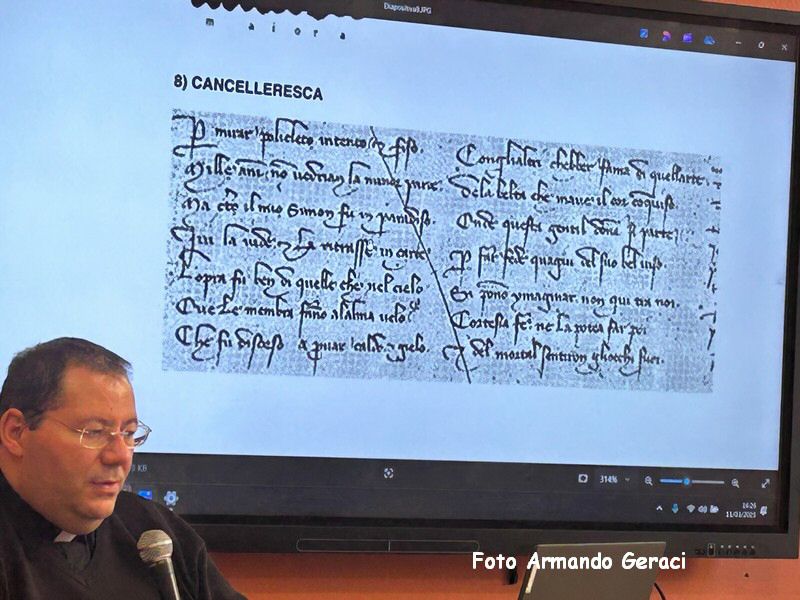 Diapositiva8.JPG
m a i o r a
8) CANCELLERESCA
mirar policleto intento fiso. Conglialtri chebber fama di quellarte.
Mille anni no vedrian la minor parte. Dela belta che mave il cor conquiso.
Ma il mio Simon fu in paradiso. Onde questa gentil dona parte.
Ivi la vide. la ritrasse in carte fede quagiu del suo bel viso.
Lopra fu ben di quelle che nel cielo Si ymaginar. non qui tra noi.
Oue le membra fano alalma velo Cortesia fe. ne la potea far poi
Che fu disceso a pvar caldo gielo. del mortal sentiron gliocchi suoi.
KB
314%
16:26
11/03/2023
Foto Armando Geraci